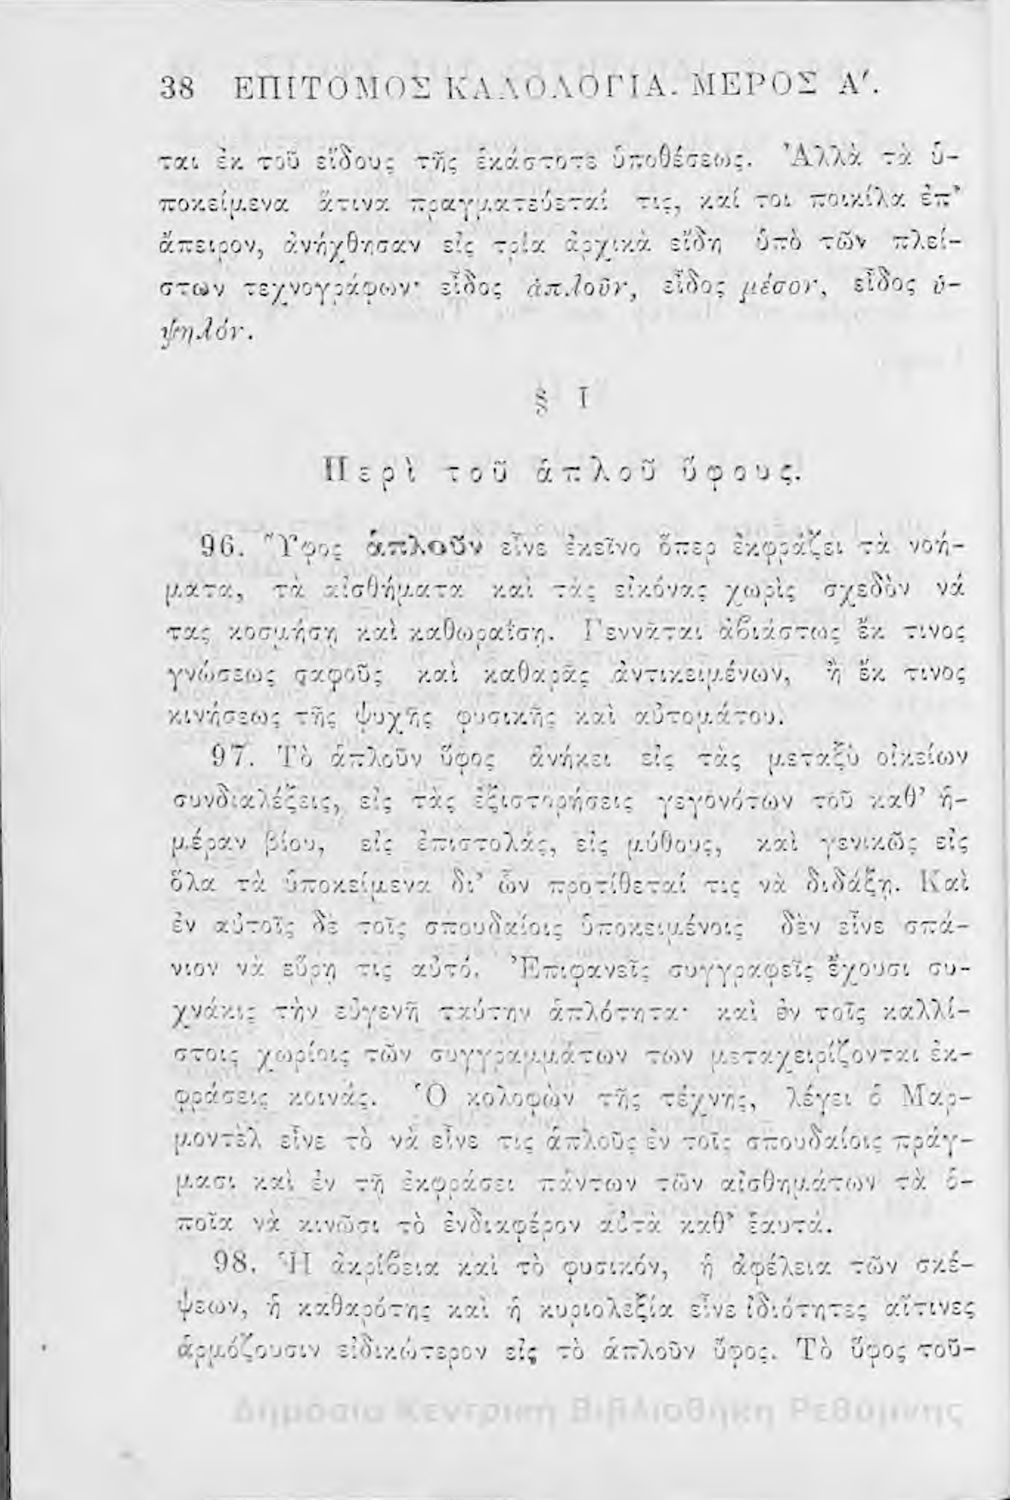 38 ΕΠΙΤΟΜΟΣ ΚΑΛΟΛΟΓΙΑ. ΜΕΡΟΣ Α'.
ται ἐκ τοῦ εἴδους τῆς ἑκάστοτε ὑποθέσεως. Ἀλλὰ τὰ ὑ-
ποκείμενα ἅτινα πραγματεύεταί τις, καί τοι ποικίλα ἐπ'
ἄπειρον, ἀνήχθησαν εἰς τρία ἀρχικὰ εἴδη ὑπὸ τῶν πλεί-
στων τεχνογράφων· εἶδος ἁπλοῦν, εἶδος μέσον, εἶδος ὑ-
ψηλόν.
§ I
Περὶ τοῦ ἁπλοῦ ὕφους.
96. Ὕφος ἁπλοῦν εἶνε ἐκεῖνο ὅπερ ἐκφράζει τὰ νοή-
ματα, τὰ αἰσθήματα καὶ τὰς εἰκόνας χωρὶς σχεδὸν νά
τας κοσμήσῃ καὶ καθωραΐσῃ. Γεννᾶται ἀβιάστως ἔκ τινος
γνώσεως σαφοῦς καὶ καθαρᾶς ἀντικειμένων, ἢ ἔκ τινος
κινήσεως τῆς ψυχῆς φυσικῆς καὶ αὐτομάτου.
97. Τὸ ἁπλοῦν ὕφος ἀνήκει εἰς τὰς μεταξὺ οἰκείων
συνδιαλέξεις, εἰς τὰς ἐξιστορήσεις γεγονότων τοῦ καθ' ἡ-
μέραν βίου, εἰς ἐπιστολάς, εἰς μύθους, καὶ γενικῶς εἰς
ὅλα τὰ ὑποκείμενα δι' ὧν προτίθεταί τις νὰ διδάξῃ. Καὶ
ἐν αὐτοῖς δὲ τοῖς σπουδαίοις ὑποκειμένοις δὲν εἶνε σπά-
νιον νὰ εὕρῃ τις αὐτό. Ἐπιφανεῖς συγγραφεῖς ἔχουσι συ-
χνάκις τὴν εὐγενῆ ταύτην ἁπλότητα· καὶ ἐν τοῖς καλλί-
στοις χωρίοις τῶν συγγραμμάτων των μεταχειρίζονται ἐκ-
φράσεις κοινάς. Ὁ κολοφὼν τῆς τέχνης, λέγει ὁ Μαρ-
μοντὲλ εἶνε τὸ νὰ εἶνε τις ἁπλοῦς ἐν τοῖς σπουδαίοις πράγ-
μασι καὶ ἐν τῇ ἐκφράσει πάντων τῶν αἰσθημάτων τὰ ὁ-
ποῖα νὰ κινῶσι τὸ ἐνδιαφέρον αὐτὰ καθ' ἑαυτά.
98. Ἡ ἀκρίβεια καὶ τὸ φυσικόν, ἡ ἀφέλεια τῶν σκέ-
ψεων, ἡ καθαρότης καὶ ἡ κυριολεξία εἶνε ἰδιότητες αἵτινες
ἁρμόζουσιν εἰδικώτερον εἰς τὸ ἁπλοῦν ὕφος. Τὸ ὕφος τοῦ-
Δημόσια Κεντρική Βιβλιοθήκη Ρεθύμνης